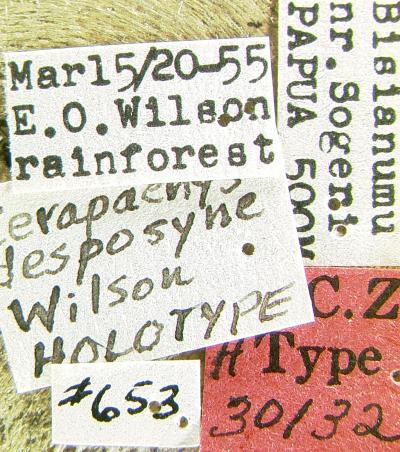 Mar15/20-55
E.O.Wilson
rainforest
desposyne
Wilson
HOLOTYPE
#653
Bisianumu
nr. Sogeri
PAPUA 500
C.Z
Type
30132